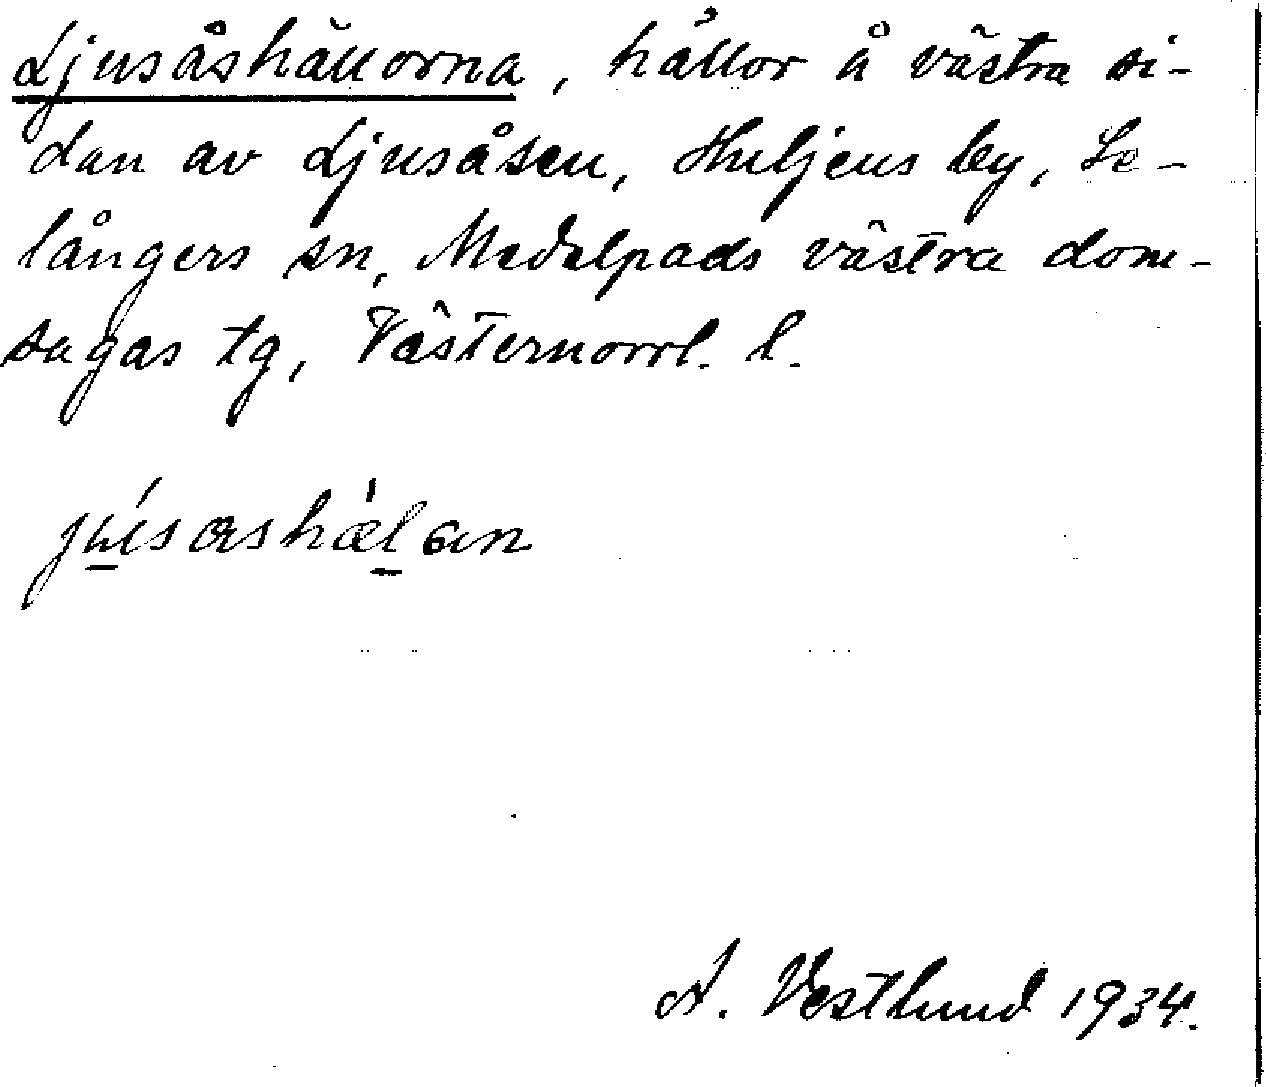 Ljusåshällorna, hällor å västra si-
dan av Ljusåsen, Huljens by, Se-
långers sn, Medelpads västra dom-
sagas tg, Västernorrl. l.
A. Vestlund 1934.